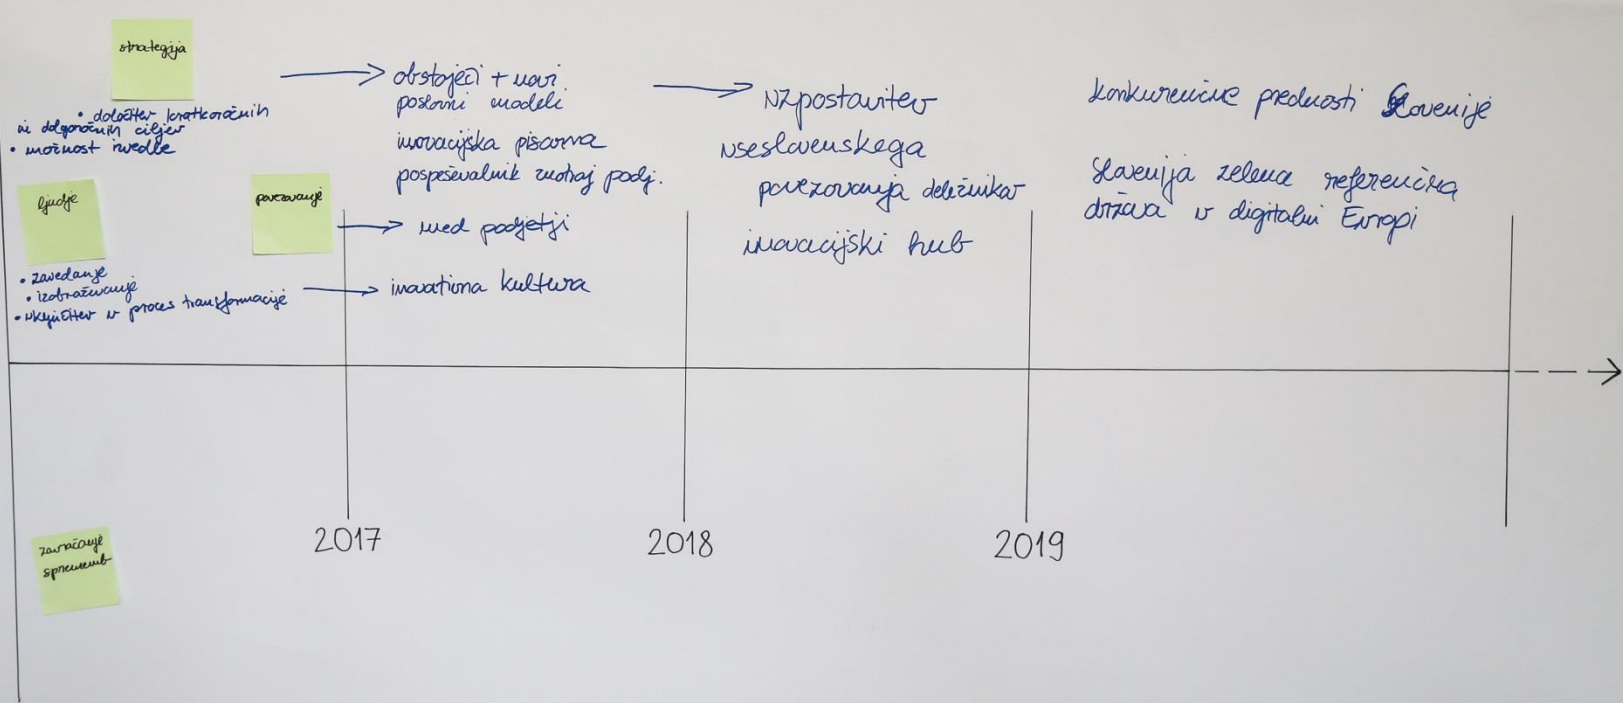 strategija
• določitev kratkoročnih
in dolgoročnih ciljev
• možnost izvedbe
ljudje
• zavedanje
• izobraževanje
• vključitev v proces transformacije
povezovanje
obstoječi + novi
poslovni modeli
inovacijska pisarna
pospeševalnik znotraj podj.
med podjetji
inovativna kultura
vzpostavitev
vseslovenskega
povezovanja deležnikov
inovacijski hub
konkurenčne prednosti Slovenije
Slovenija zelena referenčna
država v digitalni Evropi
zavračanje
sprememb
2017
2018
2019